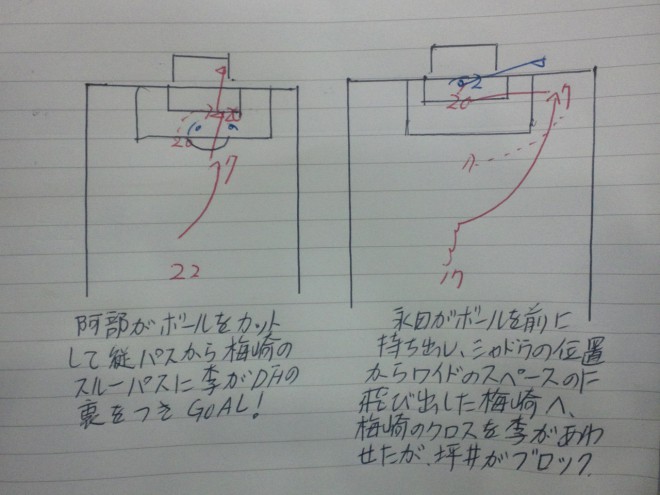 22
20
10
9
7
20
阿部がボールをカット
して縦パスから梅崎の
スルーパスに李がDFの
裏をつきGOAL!
20
2
7
17
永田がボールを前に
持ち出し、シャドウの位置
からワイドのスペースのに
飛び出した梅崎へ、
梅崎のクロスを李があわ
せたが、坪井がブロック.